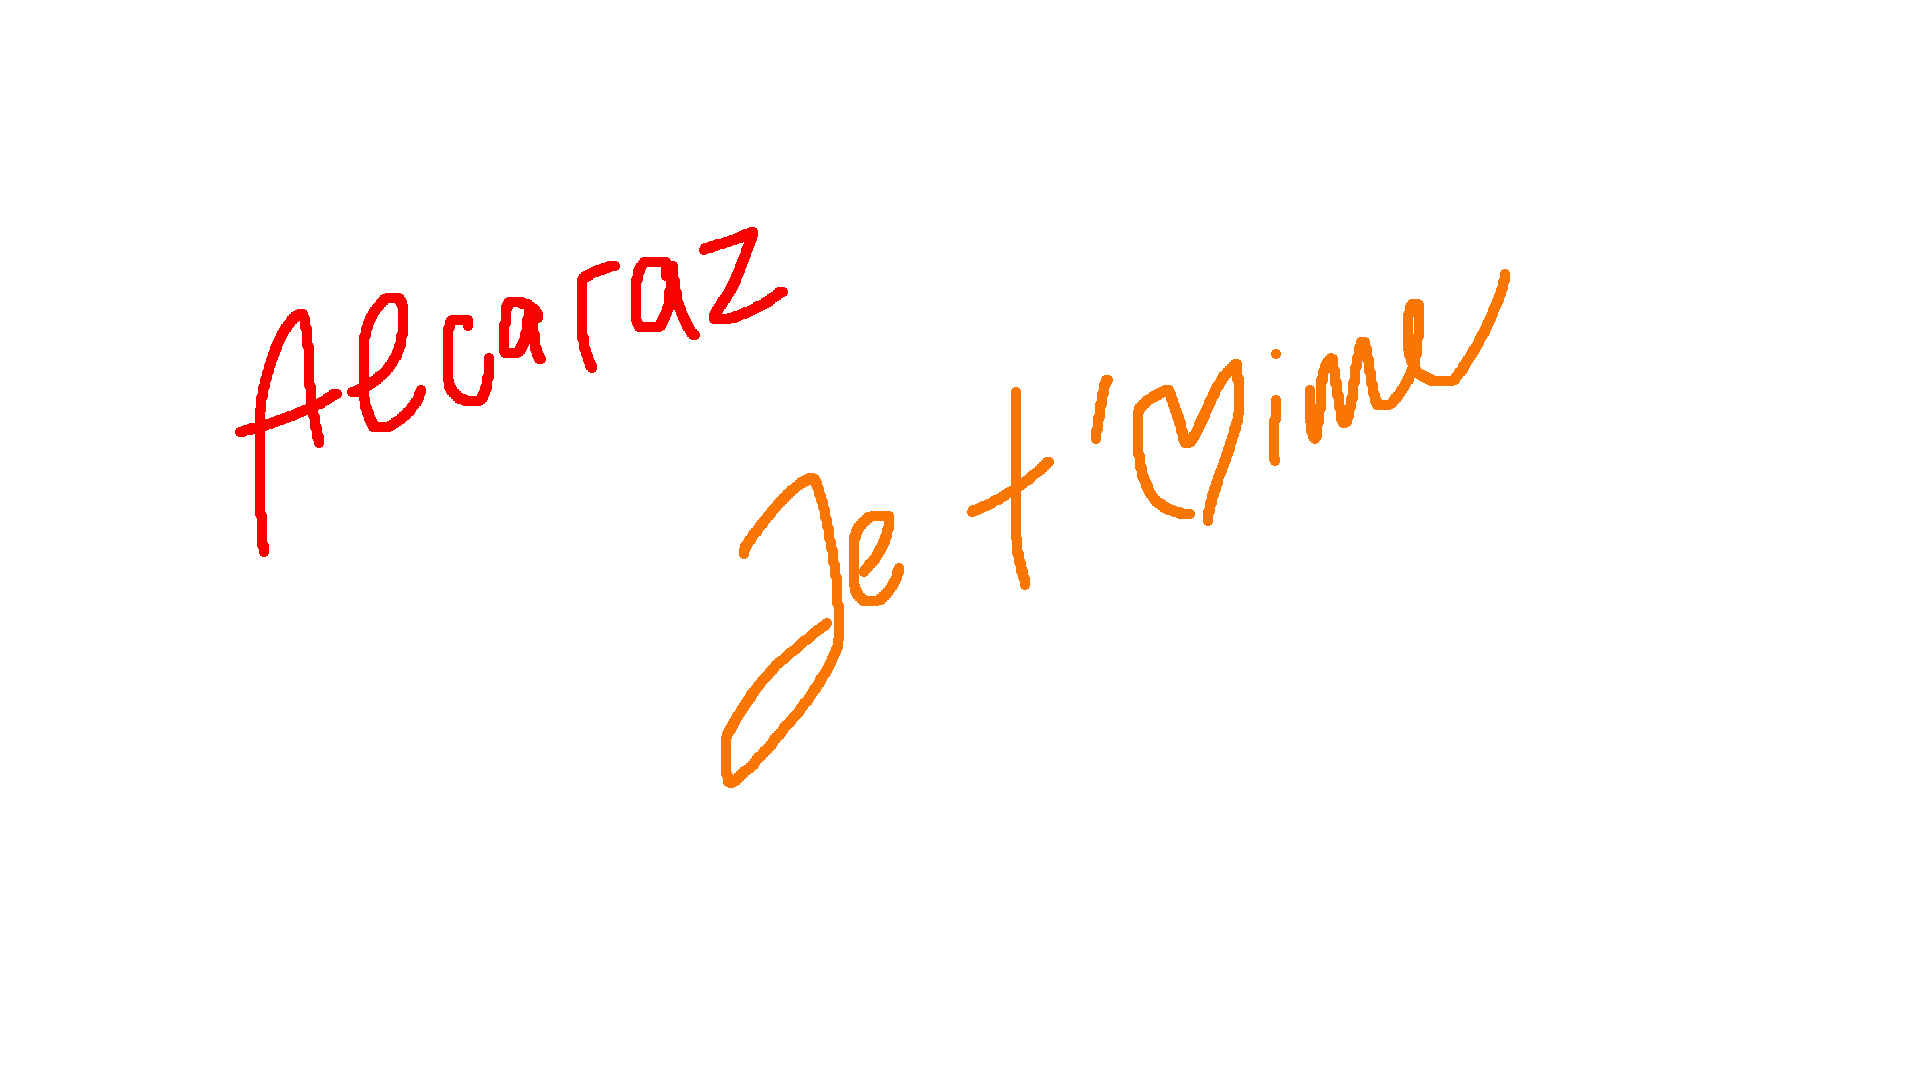 Alcaraz
Je t'♡ime